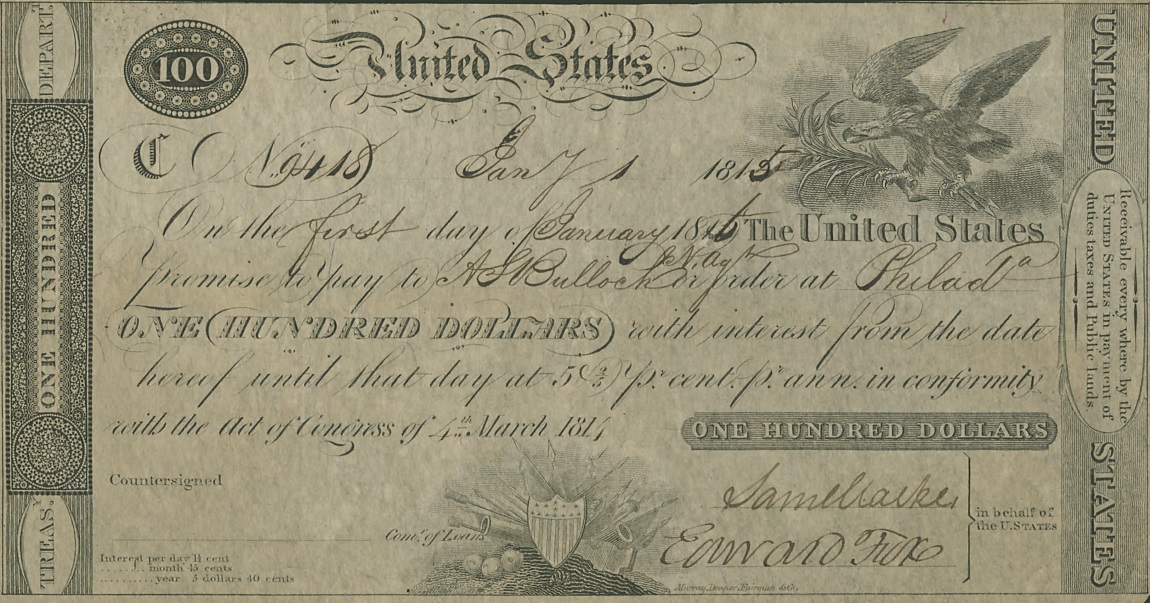 DEPART.
100
United States
UNITED
C No. 9418 Jany 1 1815
On the first day of January 1816 The United States
promise to pay to A S Bullock N. Agt or order at Philada
ONE HUNDRED DOLLARS with interest from the date
hereof until that day at 5 2/5 Pr. cent. pr. ann. in conformity
with the Act of Congress of 4th March 1814
ONE HUNDRED DOLLARS
ONE HUNDRED
Receivable every where by the
UNITED STATES in payment of
duties taxes and Public lands.
Countersigned
Saml Clarke
Edward Fox
in behalf of
the U.STATES
Comr. of Loans
Interest per day 1½ cent
......... month 45 cents
......... year 5 dollars 40 cents
TREASY.
STATES
Murray, Draper, Fairman &Co.